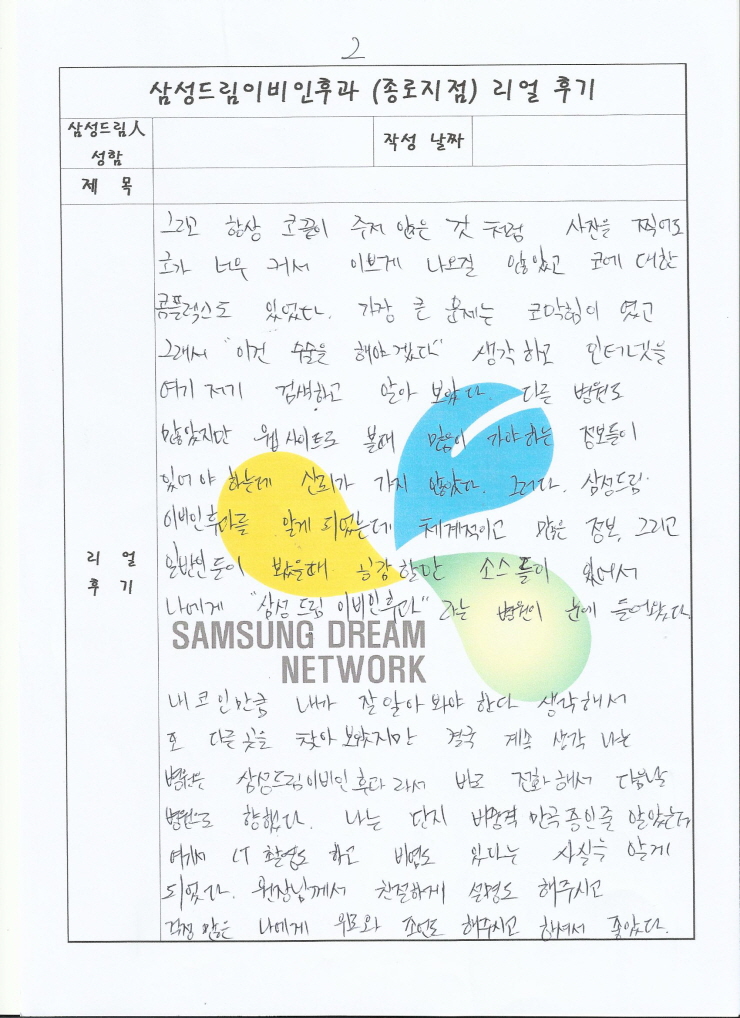 2
삼성드림이비인후과 (종로지점) 리얼 후기
삼성드림人 성함
작성 날짜
제 목
리 얼 후 기
그리고 항상 코끝이 주저 앉은 것 처럼 사진을 찍어도
코가 너무 커서 이쁘게 나오질 않았고 코에 대한
콤플렉스도 있었다. 가장 큰 문제는 코막힘이 였고
그래서 "이건 수술을 해야겠다" 생각하고 인터넷을
여기 저기 검색하고 알아 보았다. 다른 병원도
많았지만 웹사이트로 볼때 믿음이 가야하는 정보들이
있어야 하는데 신뢰가 가지 않았다. 그러다. 삼성드림
이비인후과를 알게 되었는데 체계적이고 많은 정보, 그리고
일반인들이 봤을때 건강할만 소스들이 있어서
나에게 "삼성드림 이비인후과" 라는 병원이 눈에 들어왔다.
SAMSUNG DREAM
NETWORK
내 코 인만큼 내가 잘 알아 봐야 한다 생각해서
또 다른 곳을 찾아 보았지만 결국 계속 생각 나는
병원은 삼성드림이비인후과 라서 바로 전화해서 다음날
병원으로 향했다. 나는 단지 비중격 만곡증인줄 알았는데
여기서 CT 촬영도 하고 비염도 있다는 사실을 알게
되었다. 원장님께서 친절하게 설명도 해주시고
걱정 많은 나에게 위로와 조언도 해주시고 하셔서 좋았다.